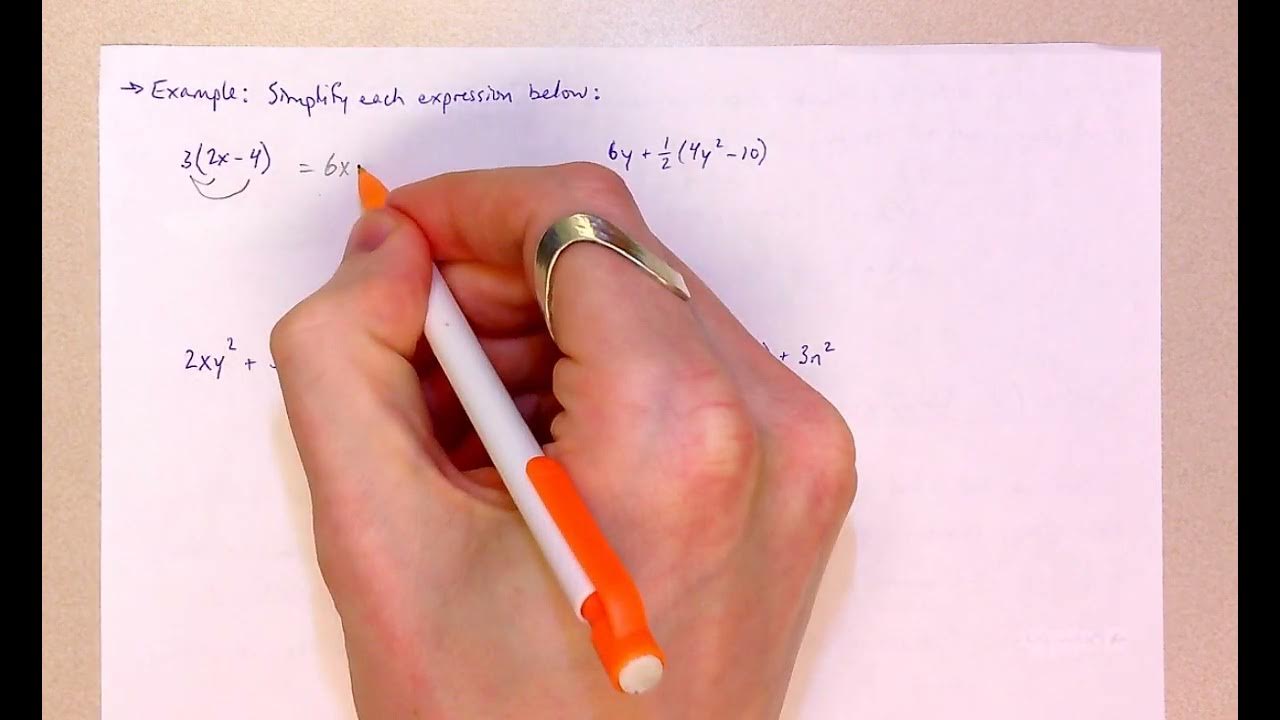 → Example: Simplify each expression below:
3(2x-4) = 6x
6y + 1/2 (4y² - 10)
2xy² +
) + 3n²